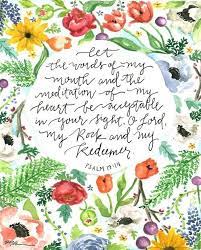 let
the words of my
mouth and the
meditation of my
heart be acceptable
in your sight, O Lord,
my Rock and my
Redeemer
PSALM 19:14